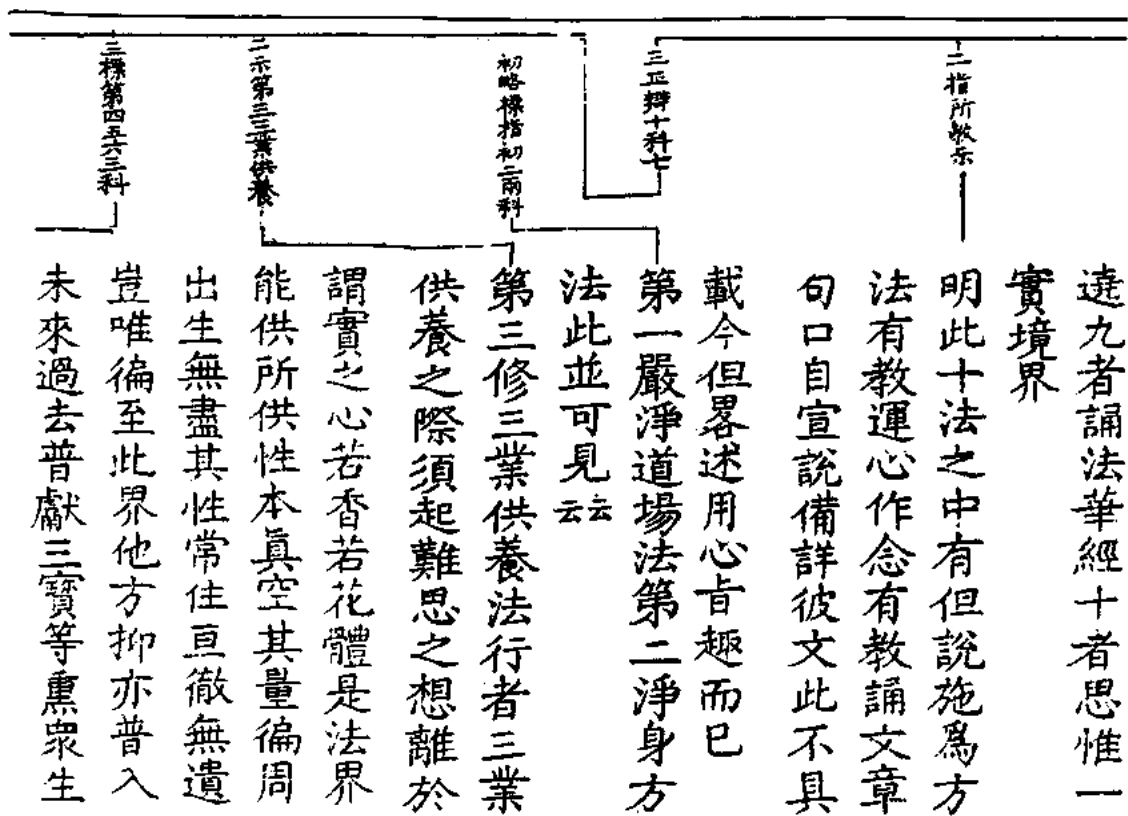 二指所敎示
三正辯十科七
初略標指初二兩科
二示第三三業供養
三標第四五六三科
遶九者誦法華經十者思惟一
實境界
明此十法之中有但說施爲方
法有教運心作念有教誦文章
句口自宣說備詳彼文此不具
載今但畧述用心旨趣而已
第一嚴淨道場法第二淨身方
法此並可見云云
第三修三業供養法行者三業
供養之際須起難思之想離於
謂實之心若香若花體是法界
能供所供性本眞空其量徧周
出生無盡其性常住亘徹無遺
豈唯徧至此界他方抑亦普入
未來過去普獻三寶等熏眾生